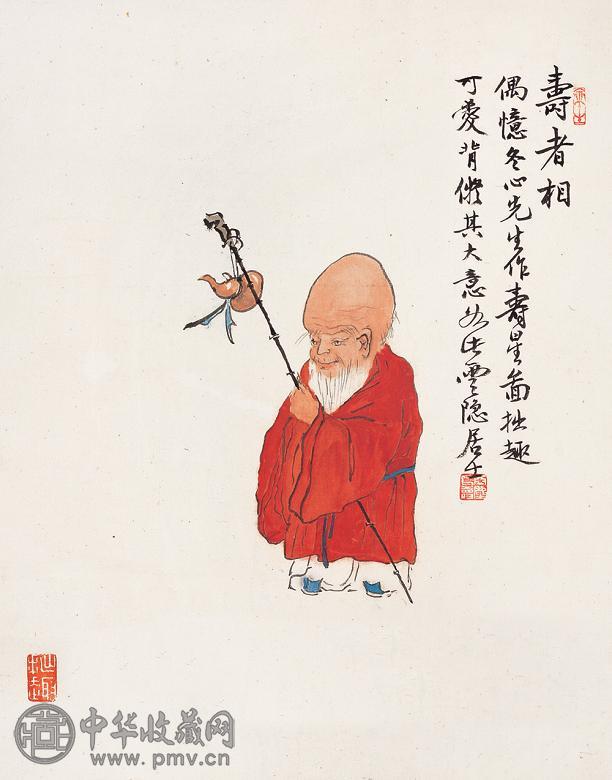 壽者相
偶憶冬心先生作壽星圖拙趣
可愛背儗其大意如此雲隐居士
中华收藏网
www.pmv.cn